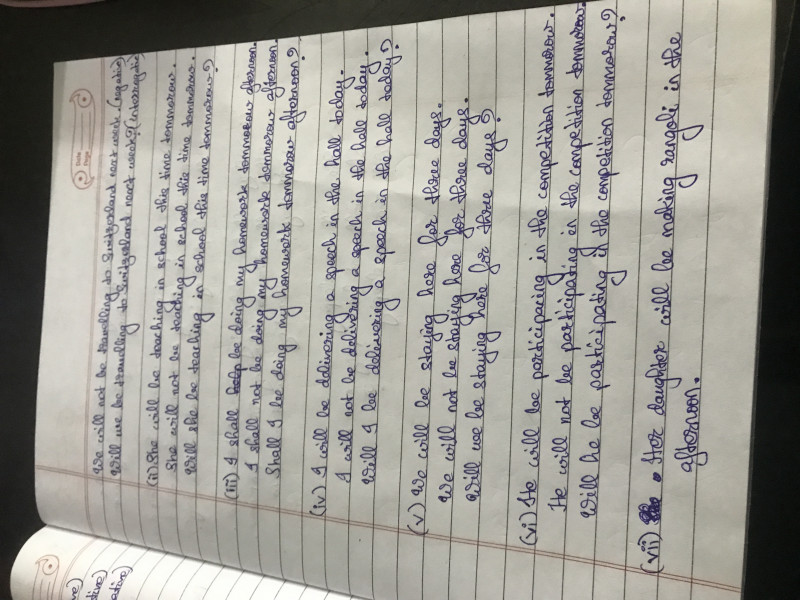 Date
Page
We will not be travelling to Switzerland next week (negative)
Will we be travelling to Switzerland next week? (interrogative)
(ii) She will be teaching in school this time tommorow.
She will not be teaching in school this time tommorow.
Will she be teaching in school this time tommorow?
(iii) I shall be doing my homework tommorow afternoon.
I shall not be doing my homework tommorow afternoon.
Shall I be doing my homework tommorow afternoon?
(iv) I will be delivering a speech in the hall today.
I will not be delivering a speech in the hall today.
Will I be delivering a speech in the hall today?
(v) We will be staying here for three days.
We will not be staying here for three days.
Will we be staying here for three days?
(vi) He will be participating in the competition tommorow.
He will not be participating in the competition tommorow.
Will he be participating in the competition tommorow?
(vii) Her daughter will be making rangoli in the
afternoon.